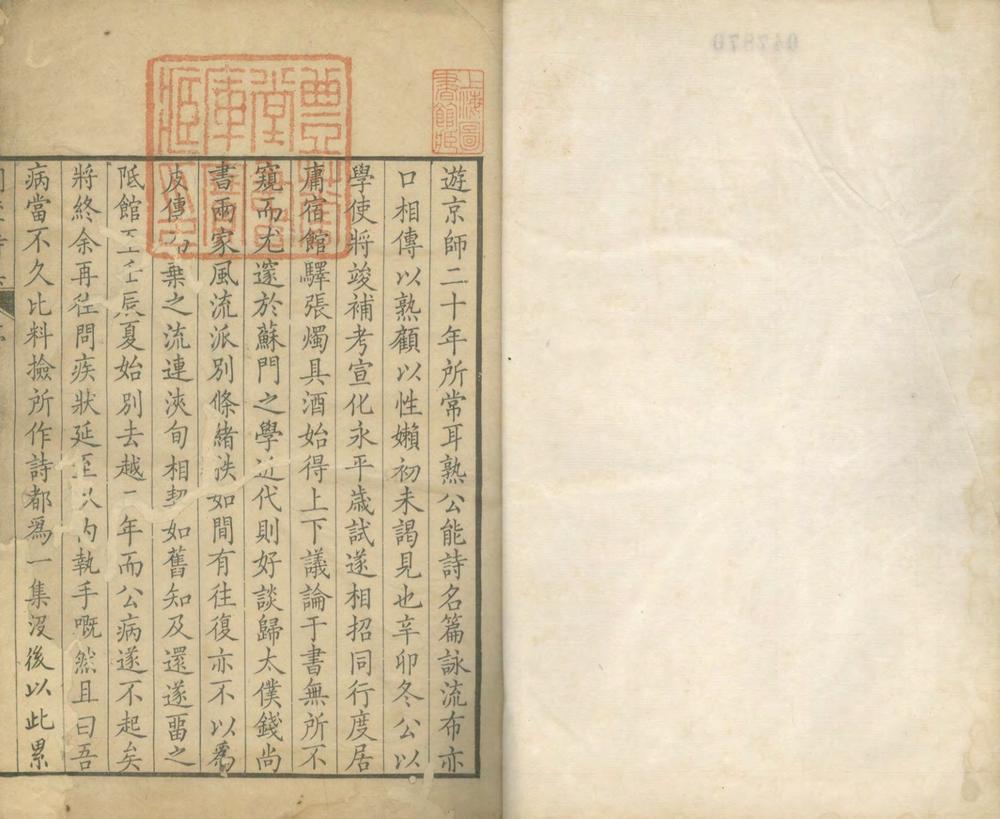 遊京師二十年所常耳熟公能詩名篇詠流布亦
口相傳以熟顧以性嬾初未謁見也辛卯冬公以
學使將竣補考宣化永平歲試遂相招同行度居
庸宿館驛張燭具酒始得上下議論于書無所不
窺而尤邃於蘇門之學近代則好談歸太僕錢尚
書兩家風流派別條緒泆如間有往復亦不以爲
棄之流連浹旬相契如舊知及還遂畱之
阺館壬辰夏始別去越年而公病遂不起矣
將終余再徃問疾狀延至內執手嘅然且曰吾
病當不久比料撿所作詩都爲一集沒後以此累
上海圖書館藏
047870